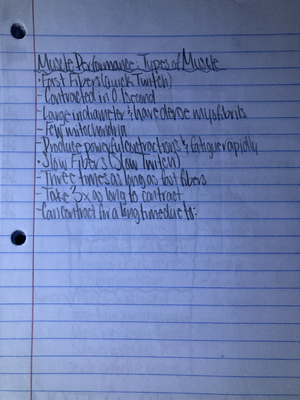 Muscle Performance: Types of Muscle
• Fast Fibers (Quick Twitch)
- Contracted in 0.1 second
- Large in diameter & have dense myofibrils
- Few mitochondria
- Produce powerful contractions & fatigue rapidly
• Slow Fibers (Slow Twitch)
- Three times as long as fast fibers
- Take 3x as long to contract
- Can contract for a long time due to: